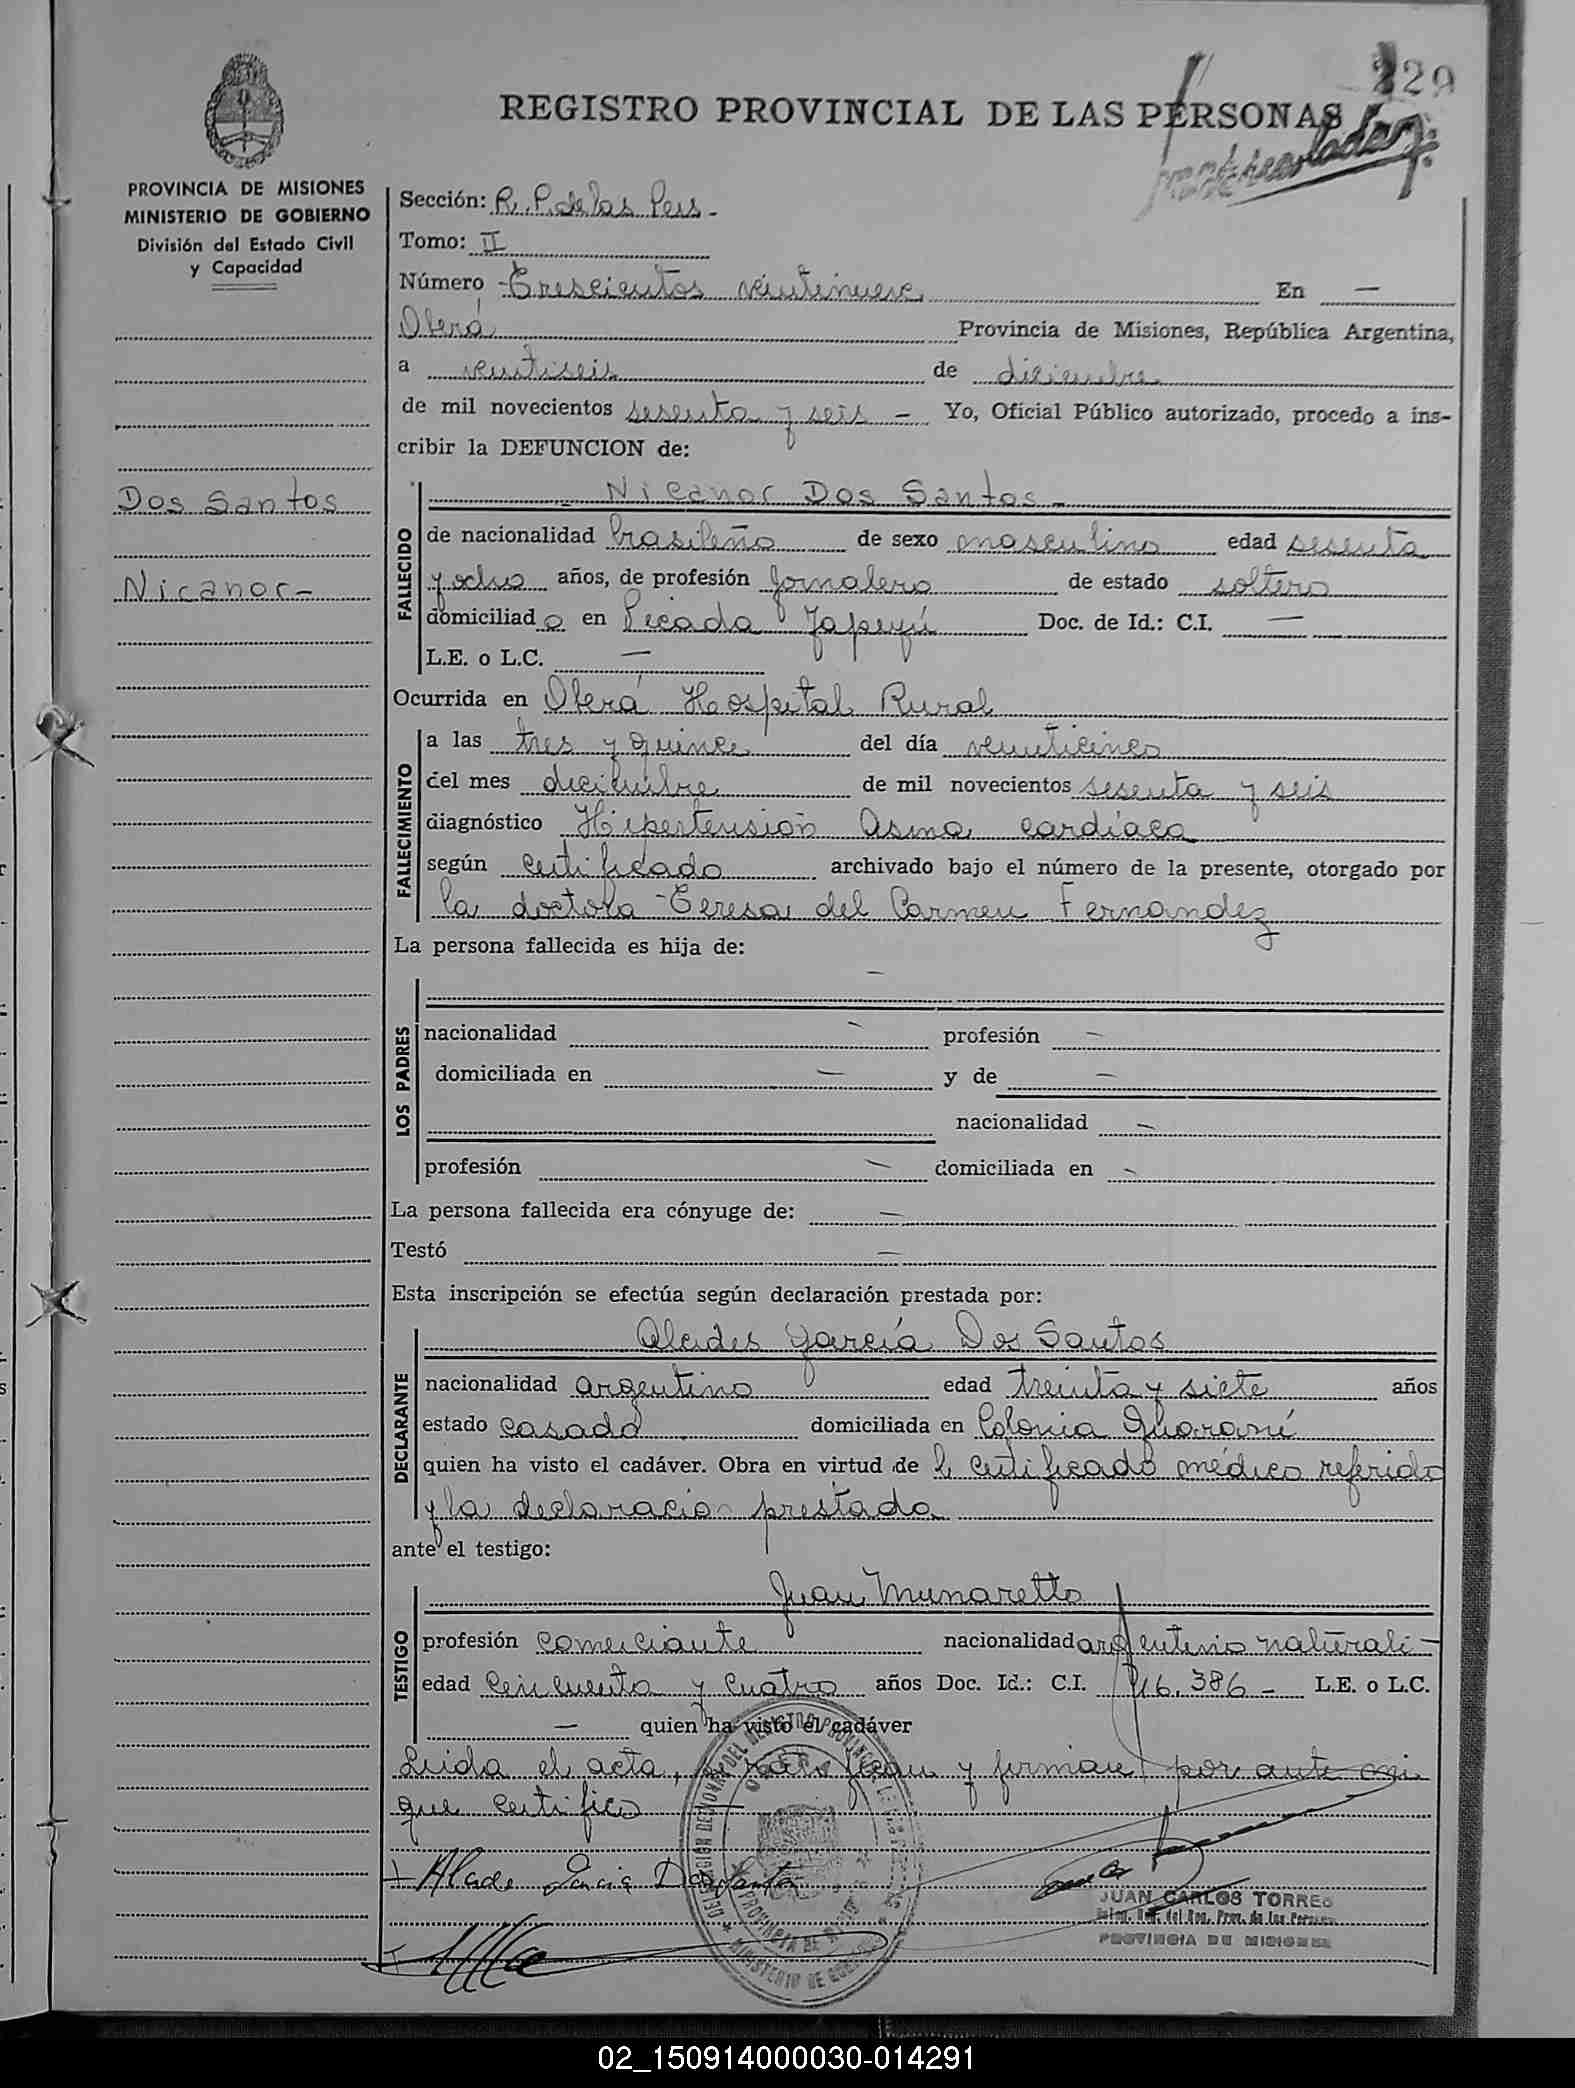 229
REGISTRO PROVINCIAL DE LAS PERSONAS
PROVINCIA DE MISIONES
MINISTERIO DE GOBIERNO
División del Estado Civil
y Capacidad
Dos Santos
Nicanor-
Sección: R. P. de las Pers-
Tomo: II
Número Trescientos veintinueve En —
Oberá Provincia de Misiones, República Argentina,
a veintiseis de diciembre
de mil novecientos sesenta y seis - Yo, Oficial Público autorizado, procedo a ins-
cribir la DEFUNCION de:
FALLECIDO
Nicanor Dos Santos-
de nacionalidad brasileño de sexo masculino edad sesenta
y ocho años, de profesión jornalero de estado soltero
domiciliado en Picada Yapeyú Doc. de Id.: C.I. —
L.E. o L.C. —
Ocurrida en Oberá Hospital Rural
FALLECIMIENTO
a las tres y quince del día veinticinco
del mes diciembre de mil novecientos sesenta y seis
diagnóstico Hipertensión Asma cardíaca
según certificado archivado bajo el número de la presente, otorgado por
la doctora Teresa del Carmen Fernandez
La persona fallecida es hija de:
LOS PADRES
—
nacionalidad — profesión —
domiciliada en — y de —
nacionalidad —
profesión — domiciliada en -
La persona fallecida era cónyuge de: —
Testó —
Esta inscripción se efectúa según declaración prestada por:
DECLARANTE
Alcides García Dos Santos
nacionalidad argentino edad treinta y siete años
estado casado domiciliada en Colonia Guaraní
quien ha visto el cadáver. Obra en virtud del certificado médico referido
y la declaracion prestada
ante el testigo:
TESTIGO
Juan Munaretto
profesión comerciante nacionalidad argentino naturali-
edad cincuenta y cuatro años Doc. Id.: C.I. 116.386- L.E. o L.C.
— quien ha visto el cadáver
Leida el acta, se ratifican y firman por ante mi
que certifico —
Garcia Dos Santos
JUAN CARLOS TORRES
PROVINCIA DE MISIONES
02_150914000030-014291